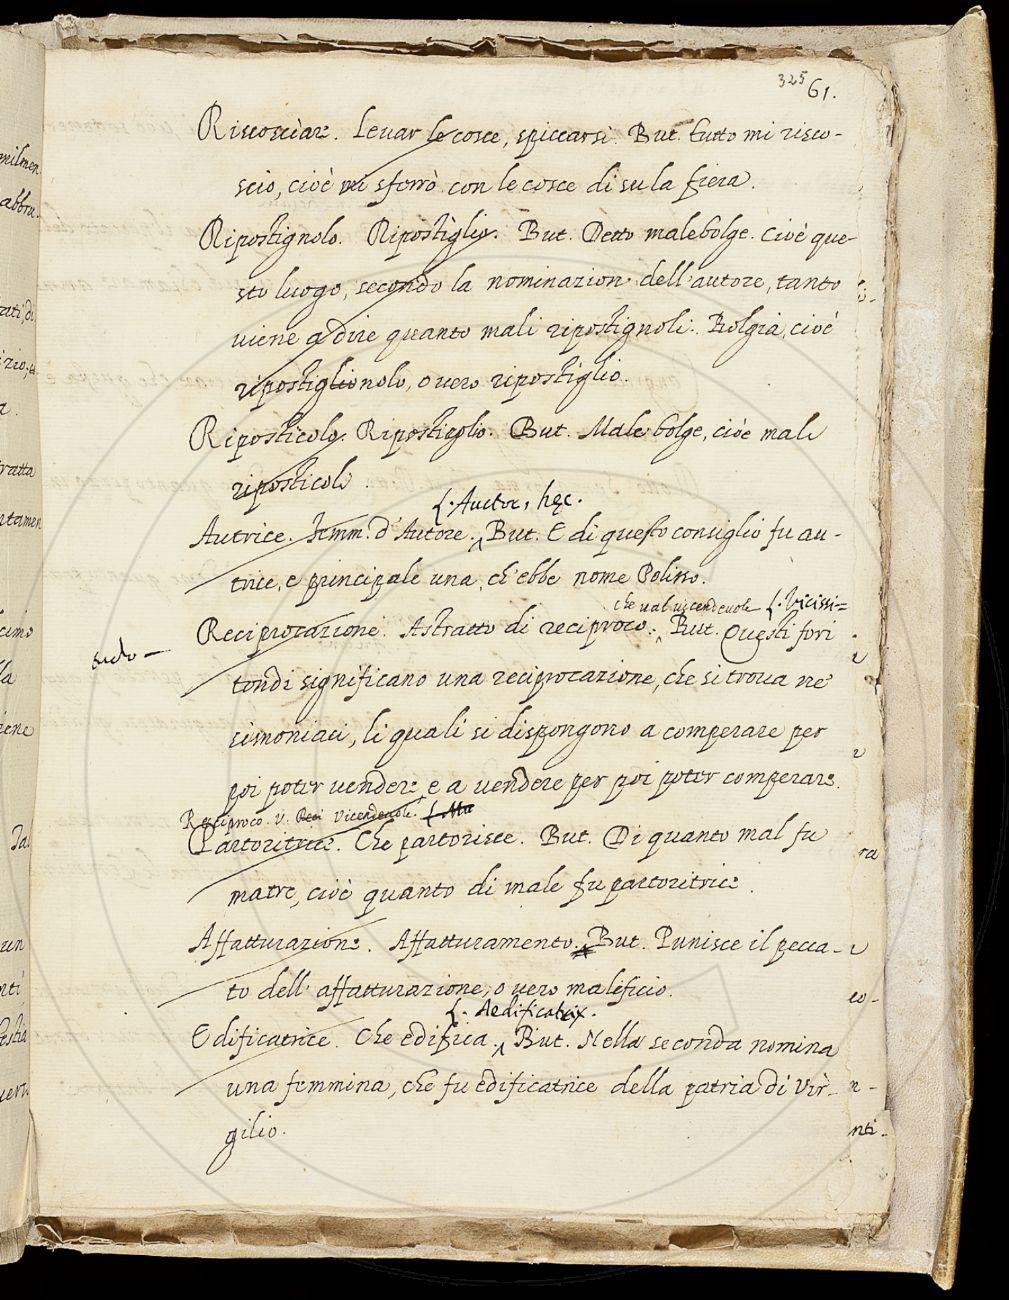 325 61.
Riscosciare. Levar le cosce, spiccarsi. But. Tutto mi risco-
scio, cioè mi sforrò con le cosce di su la fiera.
Ripostignolo. Ripostiglio. But. Detto malebolge. Cioè que-
sto luogo, secondo la nominazion dell'autore, tanto
viene a dire quanto mali ripostignoli. Bolgia, cioè
ripostiglionolo, o vero ripostiglio.
Riposticolo. Riposticolio. But. Male bolge, cioè mali
riposticoli.
L. Auctor, hęc.
Autrice. Femm. d'Autore. But. E di questo consiglio fu au-
trice, e principale una, ch'ebbe nome Polisso.
che val vicendevole L. Vicissi=
Reciprocazione. Astratto di reciproco. But. Questi fori
tudo
tondi significano una reciprocazione, che si trova ne'
simoniaci, li quali si dispongono a comperare per
poi poter vendere, e a vendere per poi poter comperare.
Reciproco. V. Reci Vicendevole.
Partoritrice. Che partorisce. But. Di quanto mal fu
matre, cioè quanto di male fu partoritrice.
Affatturazione. Affatturamento. But. Punisce il pecca-
to dell'affatturazione, o vero maleficio.
L. Aedificatrix.
Edificatrice. Che edifica. But. Nella seconda nomina
una femmina, che fu edificatrice della patria di Vir-
gilio.